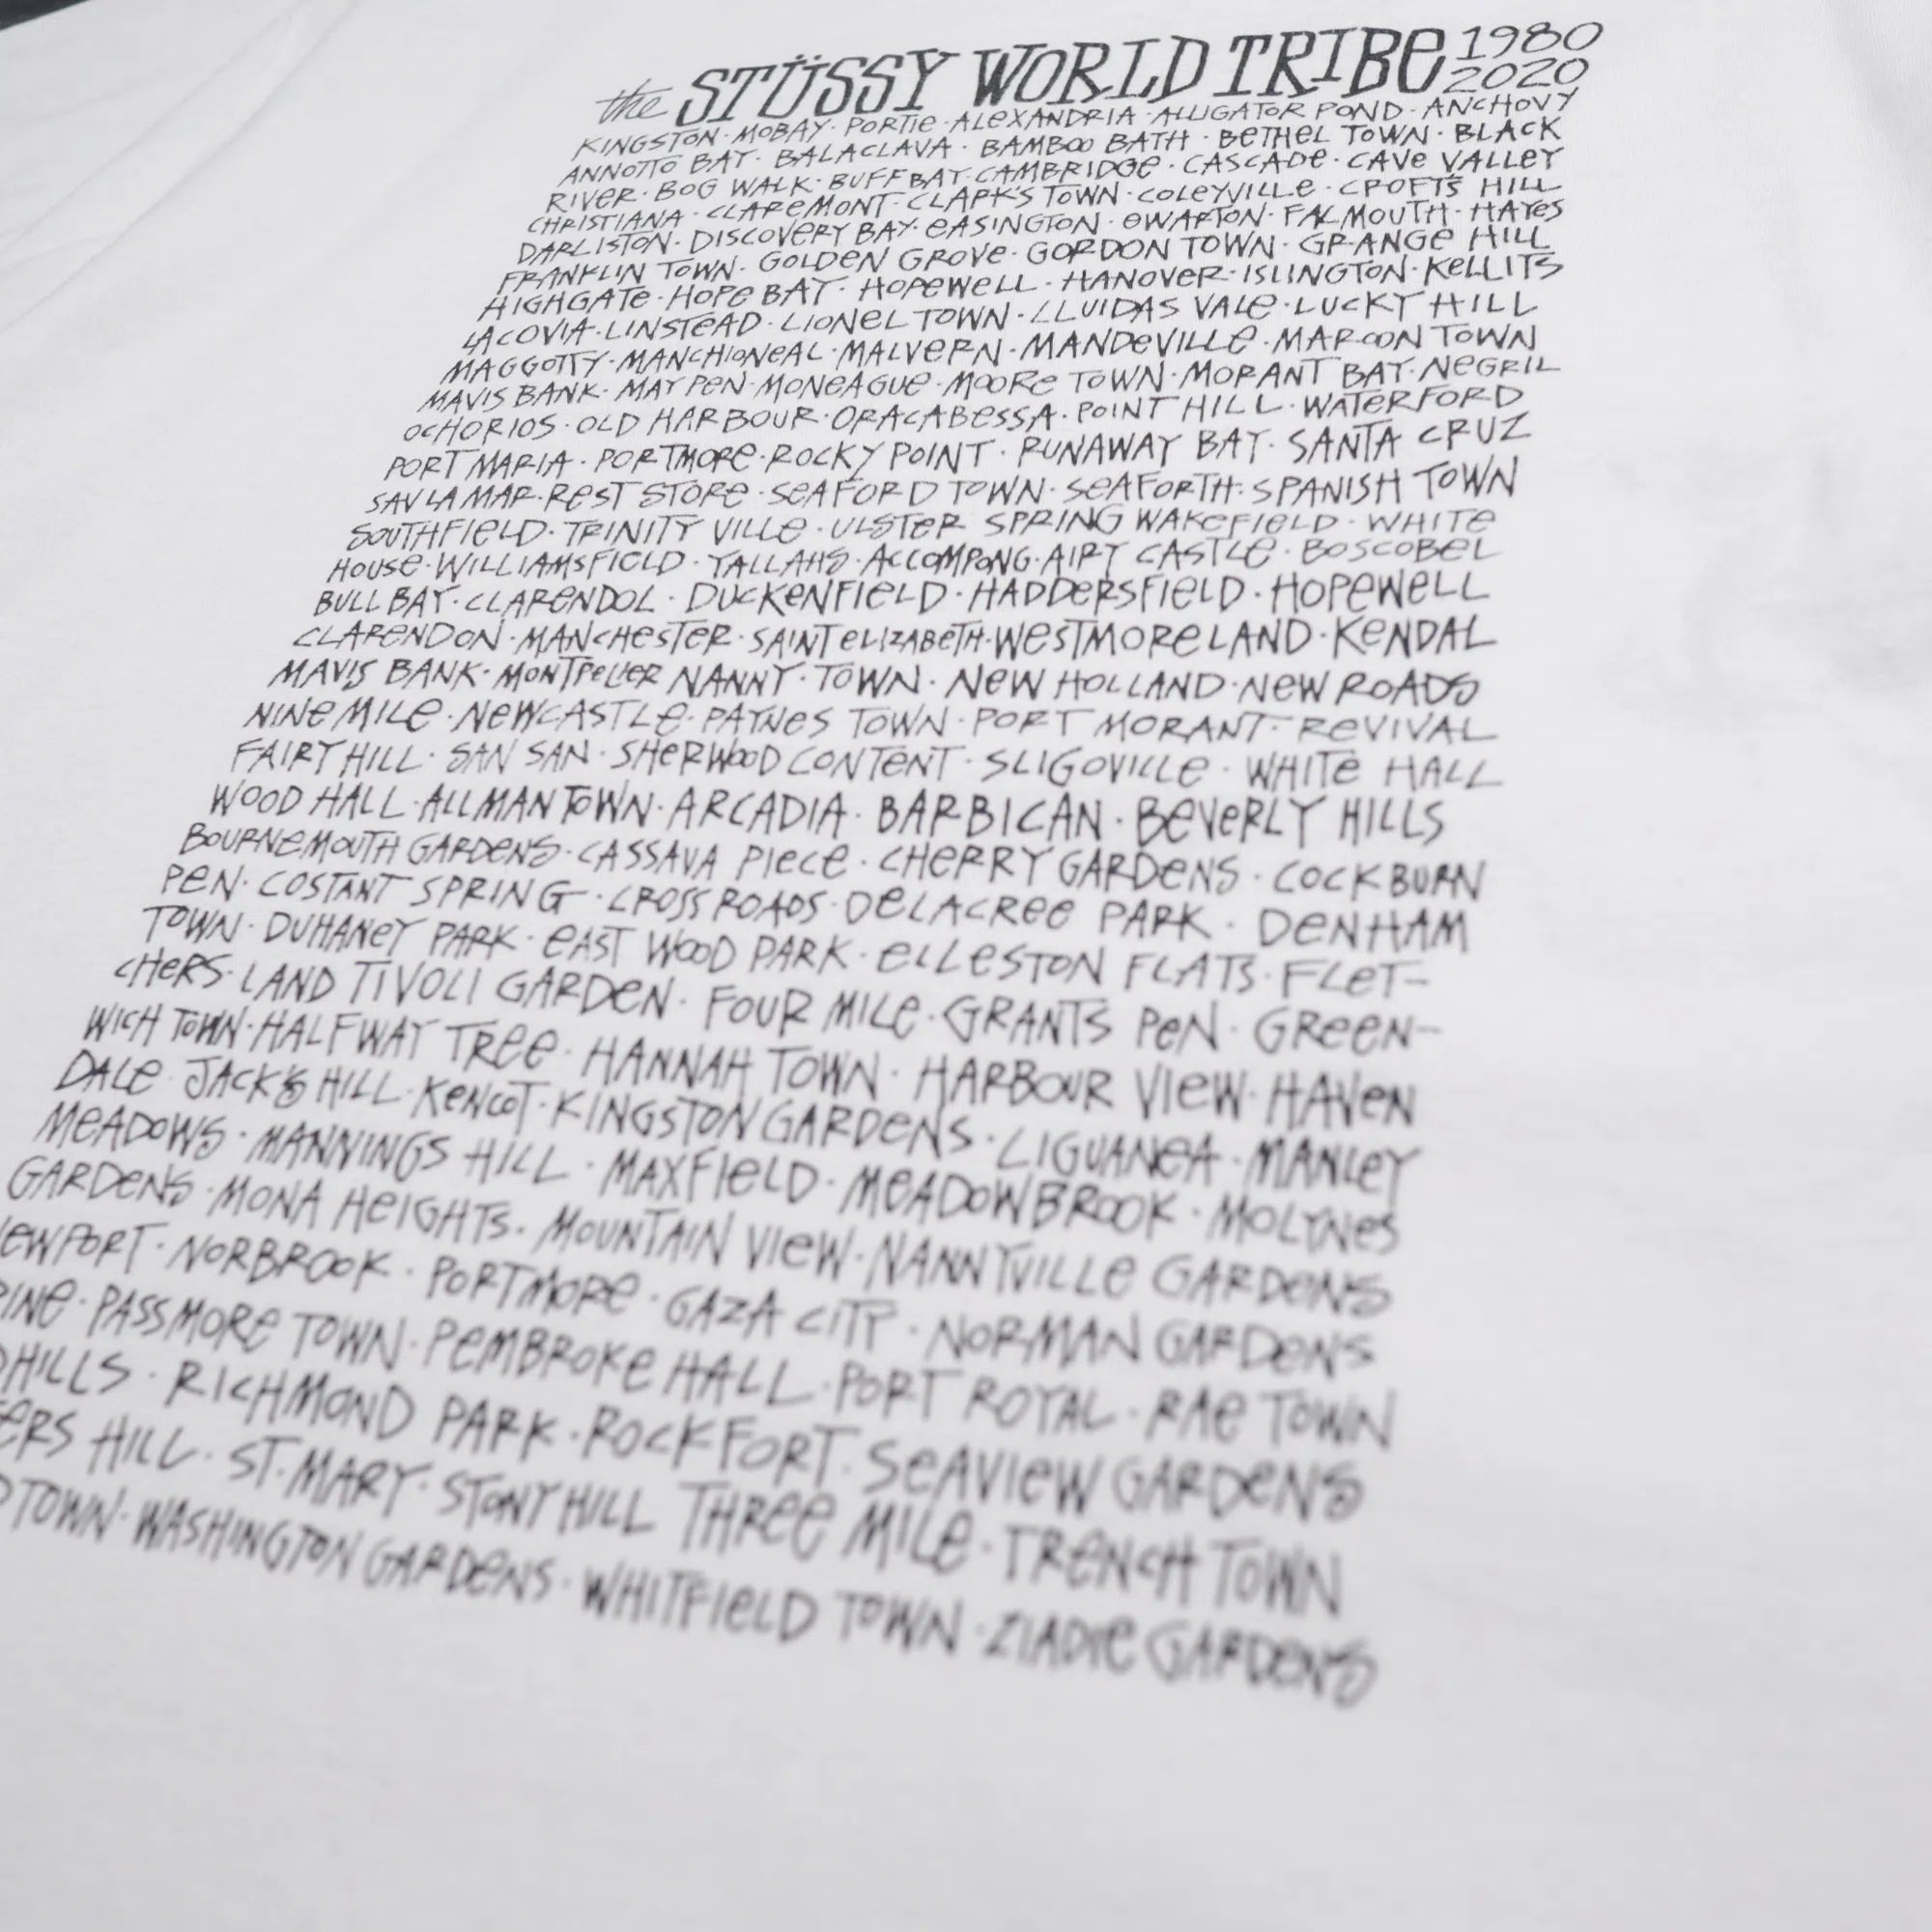 the STÜSSY WORLD TRIBE 1980 2020
KINGSTON · MOBAY · PORTIE · ALEXANDRIA · ALLIGATOR POND · ANCHOVY
ANNOTTO BAY · BALACLAVA · BAMBOO BATH · BETHEL TOWN · BLACK
RIVER · BOG WALK · BUFF BAY · CAMBRIDGE · CASCADE · CAVE VALLEY
CHRISTIANA · CLAREMONT · CLARK'S TOWN · COLEYVILLE · CROFT'S HILL
DARLISTON · DISCOVERY BAY · EASINGTON · EWARTON · FALMOUTH · HAYES
FRANKLIN TOWN · GOLDEN GROVE · GORDON TOWN · GRANGE HILL
HIGHGATE · HOPE BAY · HOPEWELL · HANOVER · ISLINGTON · KELLITS
LACOVIA · LINSTEAD · LIONEL TOWN · LLUIDAS VALE · LUCKY HILL
MAGGOTTY · MANCHIONEAL · MALVERN · MANDEVILLE · MAROON TOWN
MAVIS BANK · MAY PEN · MONEAGUE · MOORE TOWN · MORANT BAY · NEGRIL
OCHORIOS · OLD HARBOUR · ORACABESSA · POINT HILL · WATERFORD
PORT MARIA · PORTMORE · ROCKY POINT · RUNAWAY BAY · SANTA CRUZ
SAV LA MAR · REST STORE · SEAFORD TOWN · SEAFORTH · SPANISH TOWN
SOUTHFIELD · TRINITY VILLE · ULSTER SPRING WAKEFIELD · WHITE
HOUSE · WILLIAMSFIELD · YALLAHS · ACCOMPONG · AIRY CASTLE · BOSCOBEL
BULL BAY · CLARENDOL · DUCKENFIELD · HADDERSFIELD · HOPEWELL
CLARENDON · MANCHESTER · SAINT ELIZABETH · WESTMORELAND · KENDAL
MAVIS BANK · MONTPELIER NANNY · TOWN · NEW HOLLAND · NEW ROADS
NINE MILE · NEWCASTLE · PAYNES TOWN · PORT MORANT · REVIVAL
FAIRY HILL · SAN SAN · SHERWOOD CONTENT · SLIGOVILLE · WHITE HALL
WOOD HALL · ALLMAN TOWN · ARCADIA · BARBICAN · BEVERLY HILLS
BOURNEMOUTH GARDENS · CASSAVA PIECE · CHERRY GARDENS · COCKBURN
PEN · COSTANT SPRING · CROSS ROADS · DELACREE PARK · DENHAM
TOWN · DUHANEY PARK · EAST WOOD PARK · ELLESTON FLATS · FLET-
CHERS · LAND TIVOLI GARDEN · FOUR MILE · GRANTS PEN · GREEN-
WICH TOWN · HALFWAY TREE · HANNAH TOWN · HARBOUR VIEW · HAVEN
DALE · JACK'S HILL · KENCOT · KINGSTON GARDENS · LIGUANEA · MANLEY
MEADOWS · MANNINGS HILL · MAXFIELD · MEADOWBROOK · MOLYNES
GARDENS · MONA HEIGHTS · MOUNTAIN VIEW · NANNYVILLE GARDENS
EWPORT · NORBROOK · PORTMORE · GAZA CITY · NORMAN GARDENS
INE · PASSMORE TOWN · PEMBROKE HALL · PORT ROYAL · RAE TOWN
HILLS · RICHMOND PARK · ROCKFORT · SEAVIEW GARDENS
ERS HILL · ST. MARY · STONY HILL THREE MILE · TRENCH TOWN
TOWN · WASHINGTON GARDENS · WHITFIELD TOWN · ZIADIE GARDENS